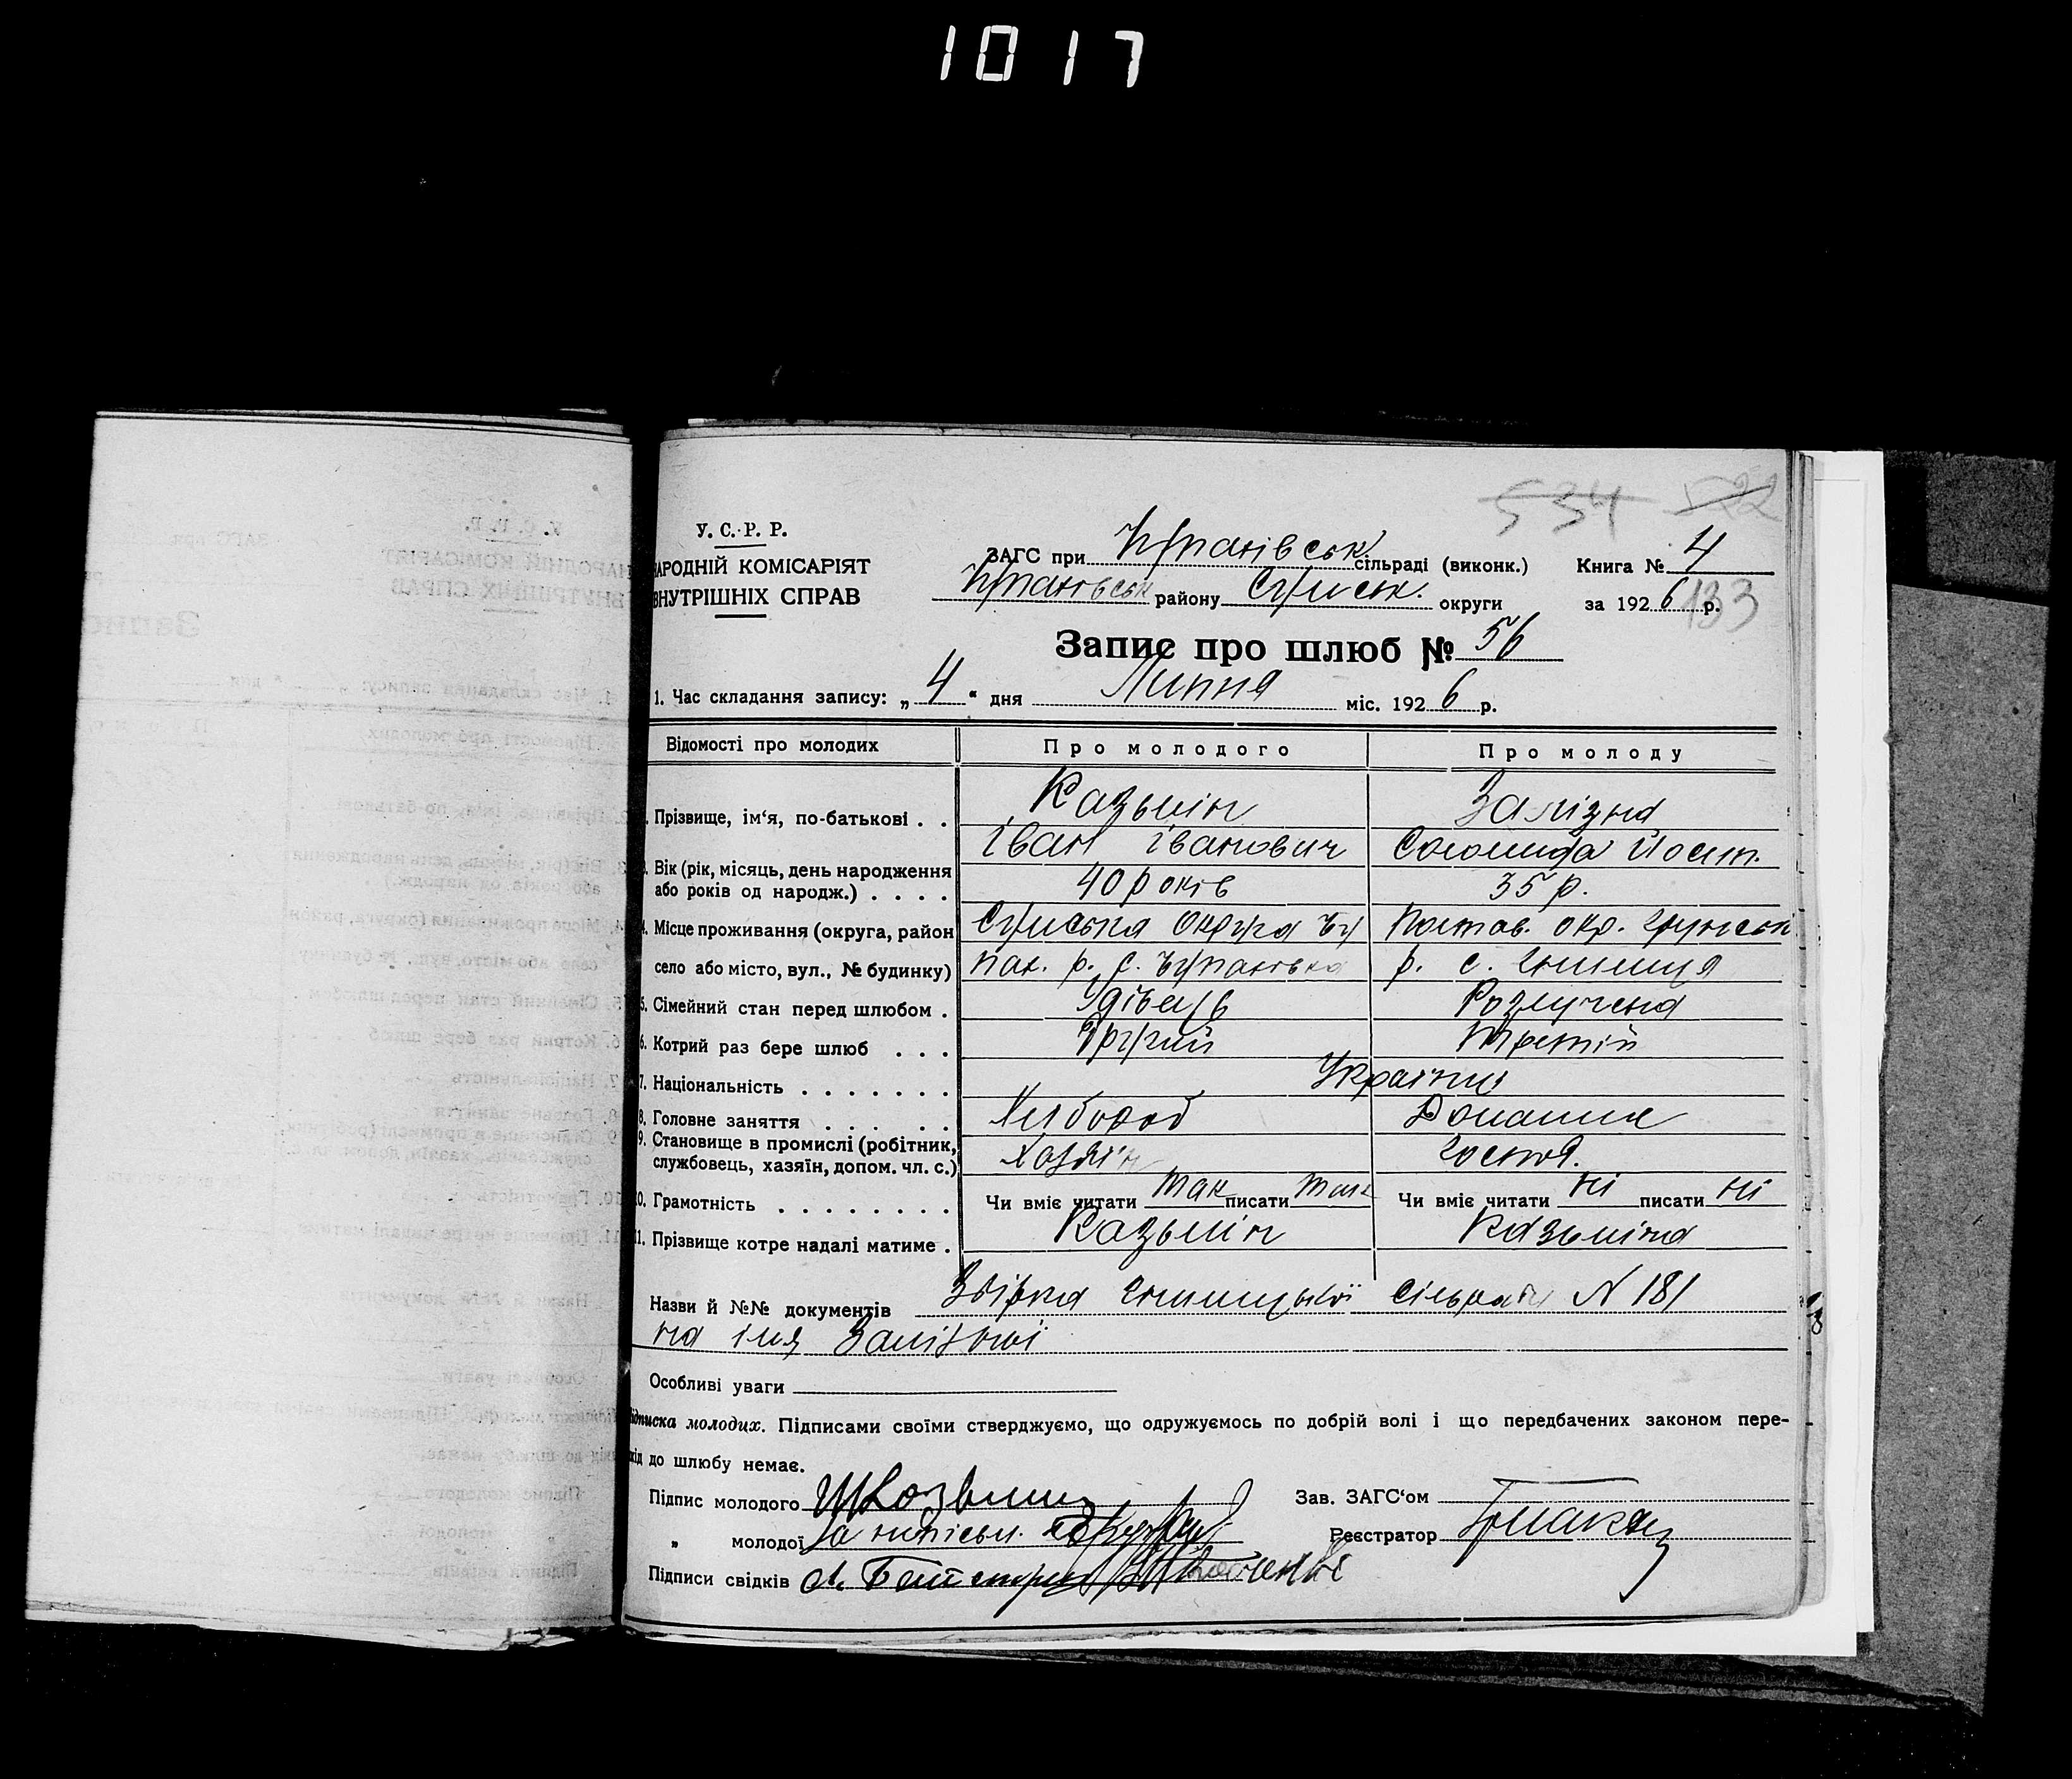 1017
534 522
У. С. Р. Р.
НАРОДНІЙ КОМІСАРІЯТ
ВНУТРІШНІХ СПРАВ
ЗАГС при Чупахівськ. сільраді (виконк.) Книга № 4
Чупахівськ району Сумськ. округи за 1926 р. 133
Запис про шлюб № 56
1. Час складання запису: „4“ дня Липня міс. 1926 р.
Відомості про молодих Про молодого Про молоду
Прізвище, ім‘я, по-батькові . . Казьмін Залізна
Іван Іванович Соломида Йосип.
3. Вік (рік, місяць, день народження
або років од народж.) . . . . 40 років 35 р.
4. Місце проживання (округа, район Сумська Округа Чу Полтав. окр. Грунськ
село або місто, вул., № будинку) пах. р. с. Чупахівка р. с.
5. Сімейний стан перед шлюбом . Удівець Розлучена
6. Котрий раз бере шлюб . . . Другий Третій
7. Національність . . . . . . . Українці
8. Головне заняття . . . . . Хлібороб Домашнє
9. Становище в промислі (робітник,
службовець, хазяїн, допом. чл. с.) Хазяїн Господ.
10. Грамотність . . . . . . . . Чи вміє читати так писати так Чи вміє читати ні писати ні
11. Прізвище котре надалі матиме . Казьмін Казьміна
Назви й №№ документів сільради N 181
на імя Залізної
Особливі уваги
Підписка молодих. Підписами своїми стверджуємо, що одружуємось по добрій волі і що передбачених законом пере-
кід до шлюбу немає.
Підпис молодого Зав. ЗАГС‘ом
„ молодої За неписьм. Реєстратор
Підписи свідків